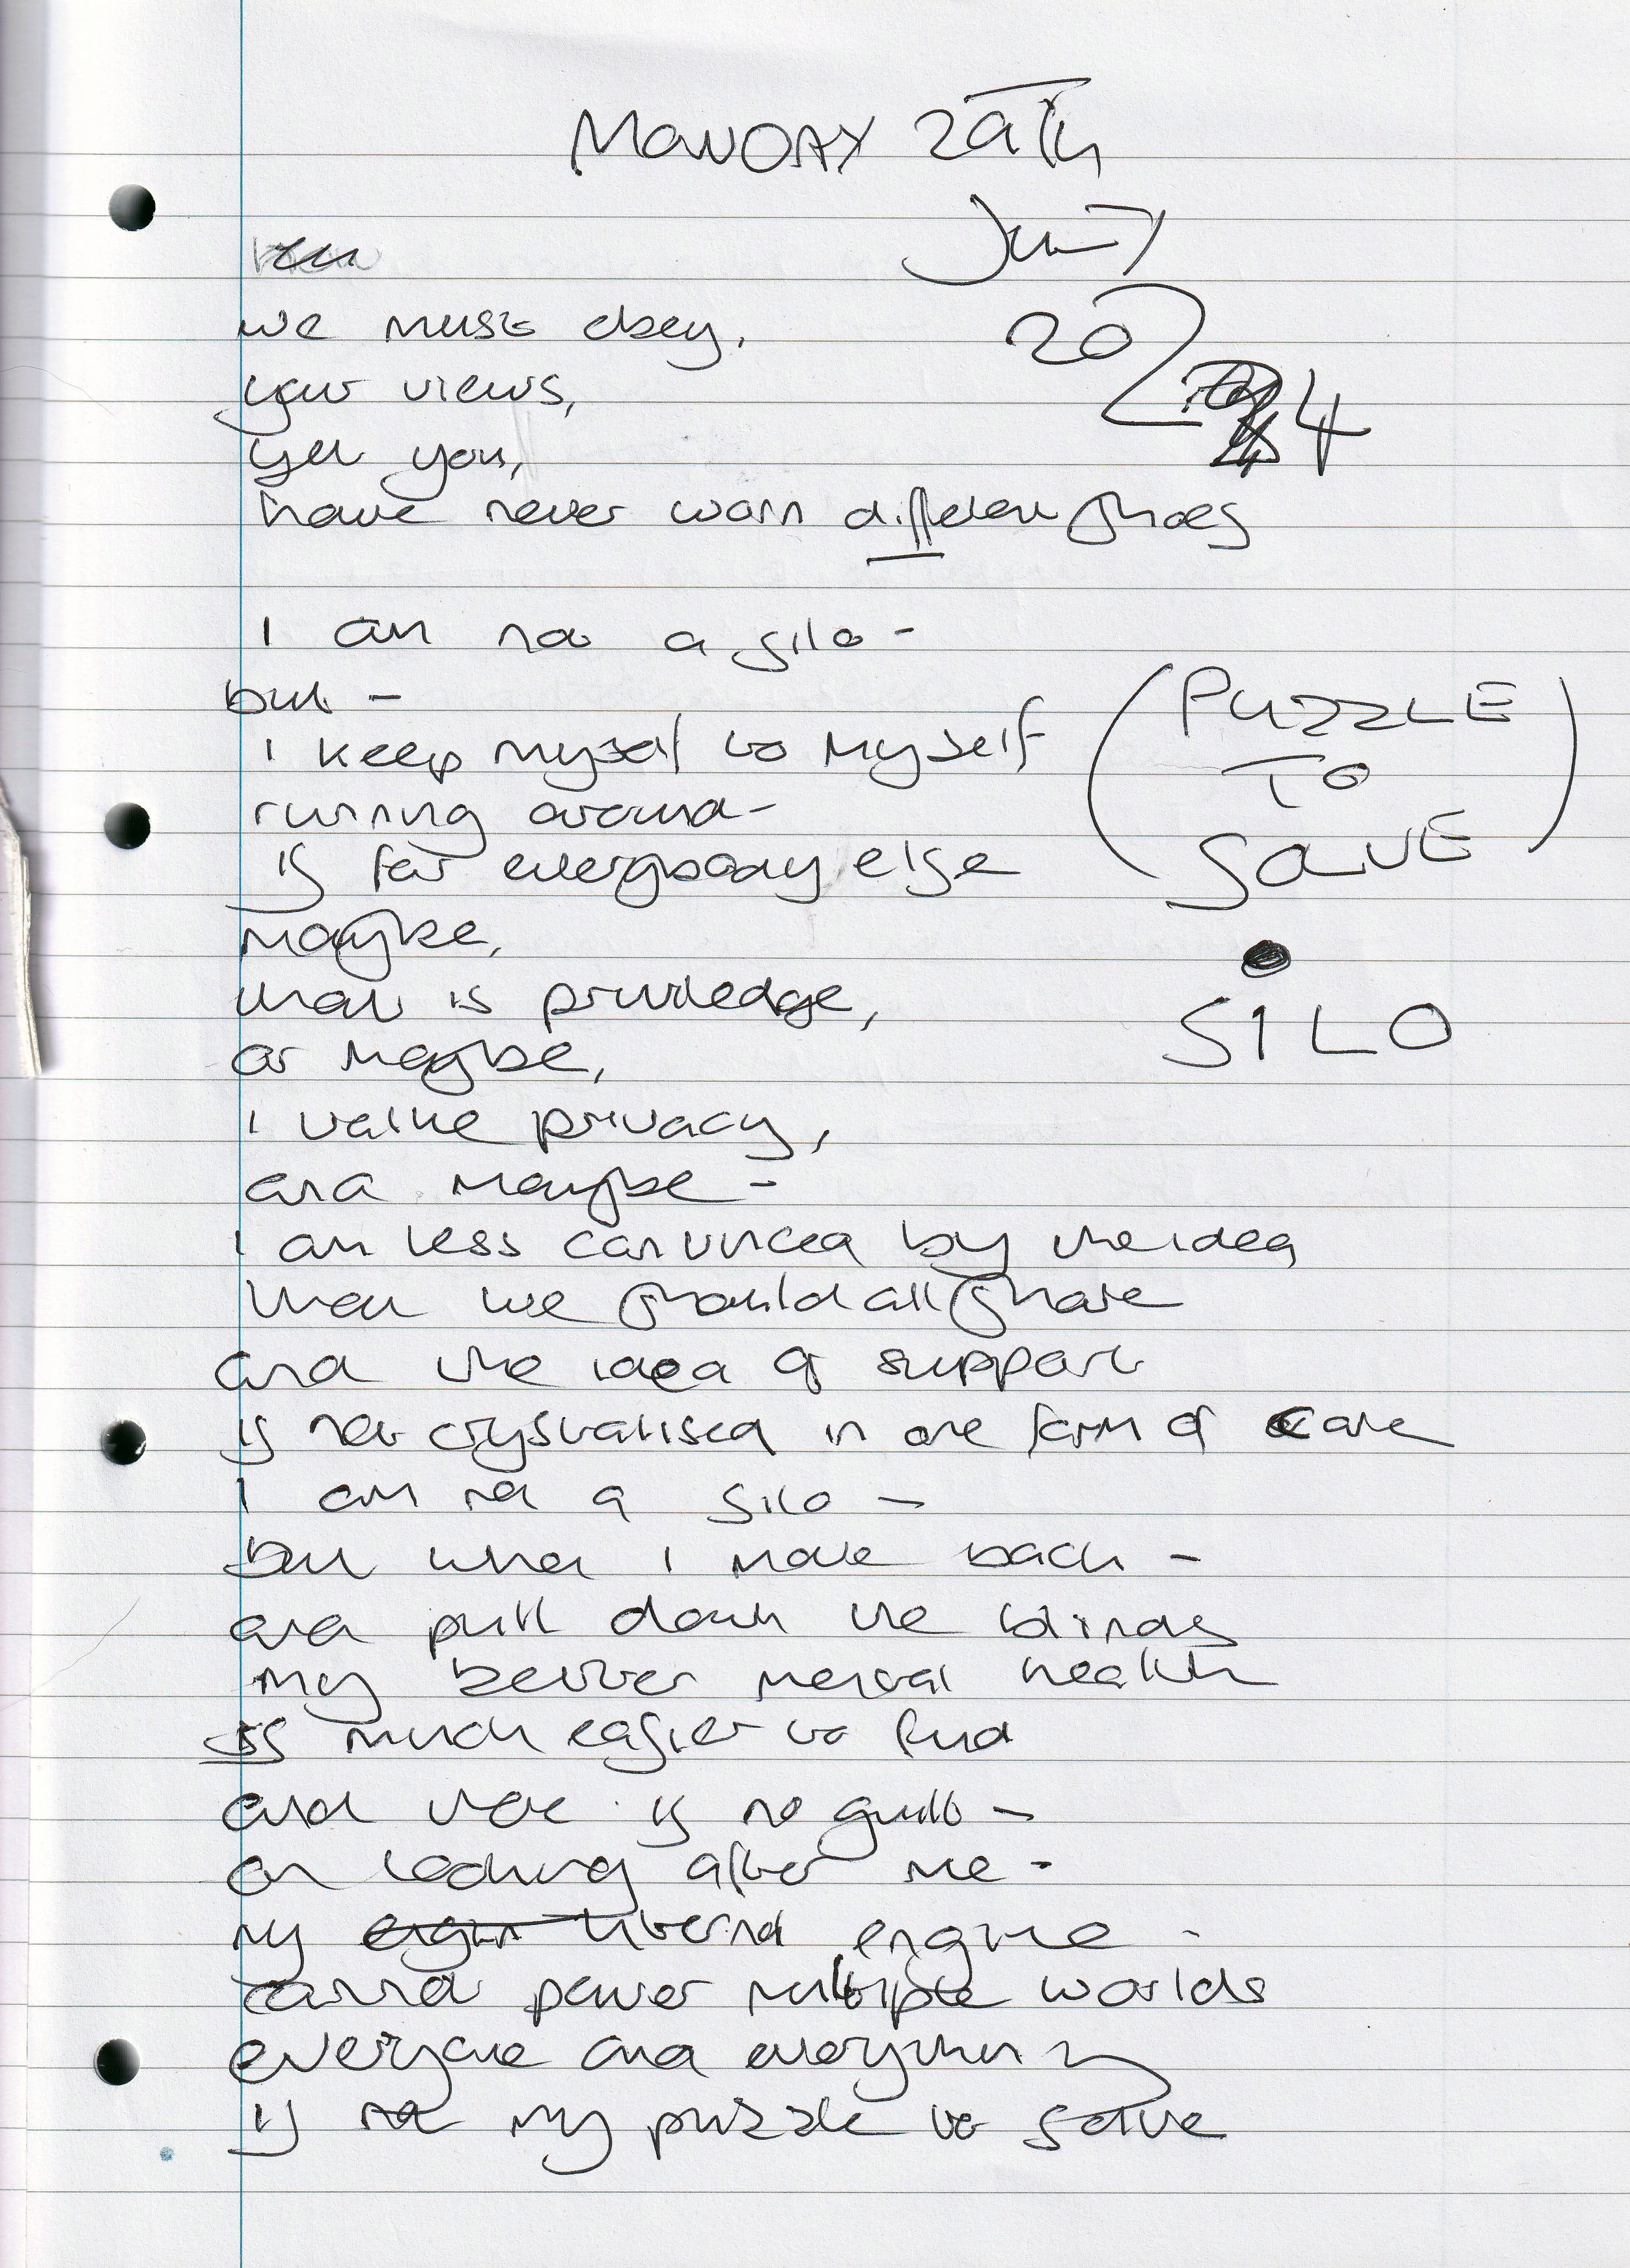 MONDAY 29Th
JULY
2024
we must obey,
your views,
yet you,
have never worn different shoes
I am not a silo -
but -
I keep myself to myself
running around -
is for everybody else
maybe,
that is priviledge,
or maybe,
I value privacy,
and maybe -
I am less convinced by the idea
that we should all share
and the idea of support
is not crystalised in one form of care
I am not a silo -
but when I move back -
and pull down the blinds
my better mental health
is much easier to find
and there is no guilt -
on looking after me -
my internal engine -
cannot power multiple worlds
everyone and everything
is not my puzzle to solve
(PUZZLE
TO
SOLVE)
SILO